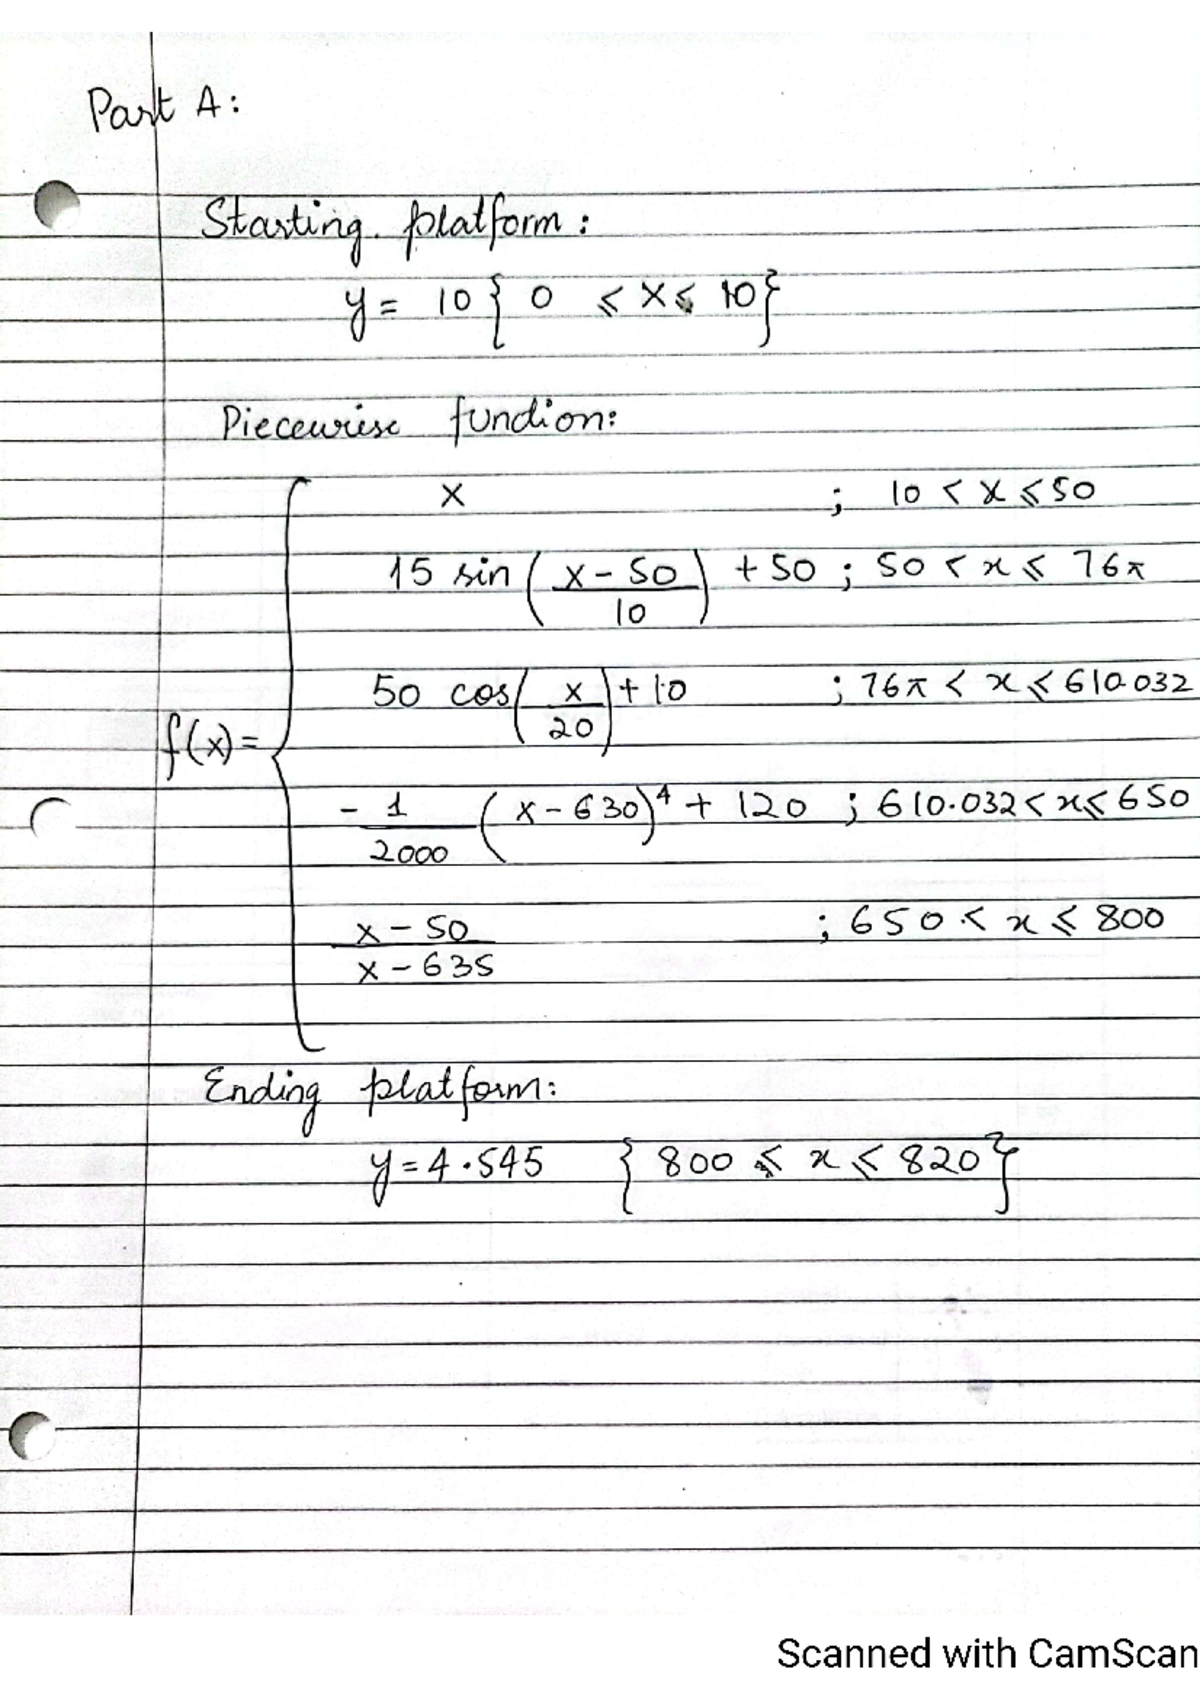 Part A:
Starting platform:
y = 10 { 0 ≤ x ≤ 10 }
Piecewise function:
x ; 10 < x ≤ 50
15 sin ( (x - 50)/10 ) + 50 ; 50 < x ≤ 76π
50 cos ( x/20 ) + 10 ; 76π < x ≤ 610.032
f(x) =
- 1/2000 ( x - 630 )⁴ + 120 ; 610.032 < x ≤ 650
(x - 50)/(x - 635) ; 650 < x ≤ 800
Ending platform:
y = 4.545 { 800 ≤ x ≤ 820 }
Scanned with CamScan